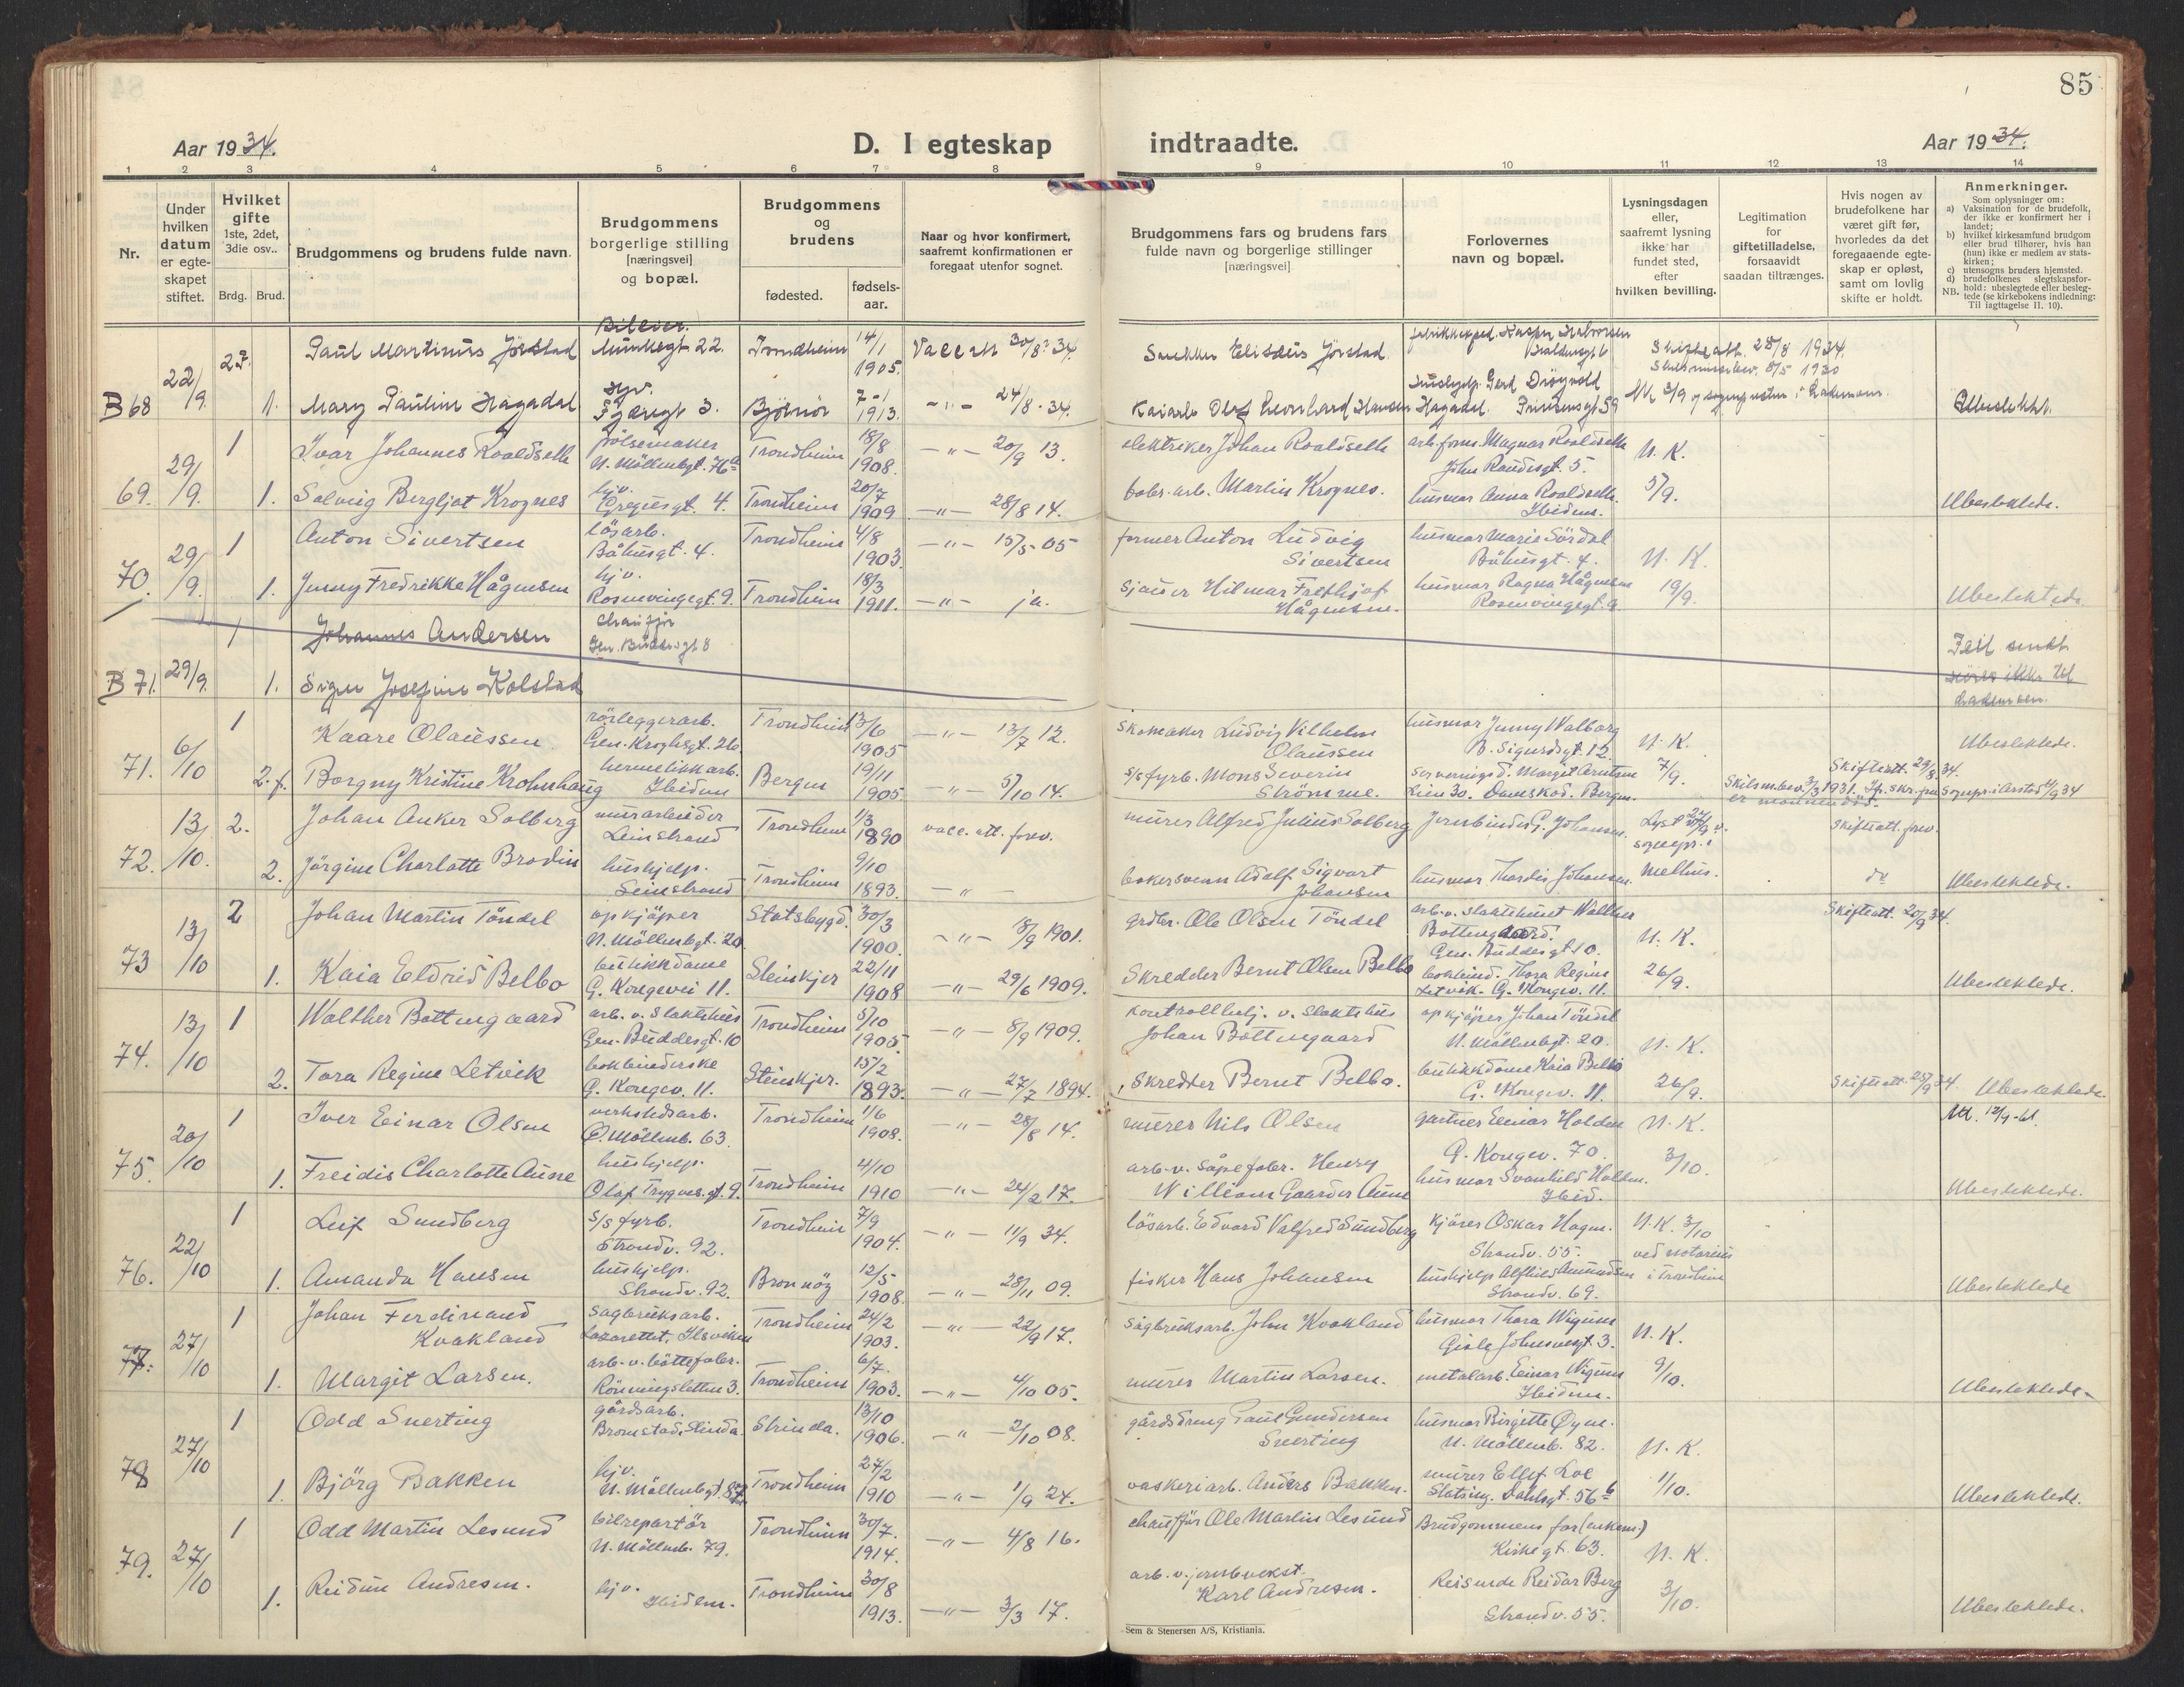 85
Aar 1934.
D. I egteskap indtraadte.
Aar 1934.
1 2 3 4 5 6 7 8 9 10 11 12 13 14
Nr.
Under hvilken datum er egteskapet stiftet.
Hvilket gifte 1ste, 2det, 3die osv..
Brdg. Brud.
Brudgommens og brudens fulde navn.
Brudgommens borgerlige stilling [næringsvei] og bopæl.
Brudgommens og brudens
fødested.
fødsels-aar.
Naar og hvor konfirmert, saafremt konfirmationen er foregaat utenfor sognet.
Brudgommens fars og brudens fars fulde navn og borgerlige stillinger [næringsvei]
Forlovernes navn og bopæl.
Lysningsdagen eller, saafremt lysning ikke har fundet sted, efter hvilken bevilling.
Legitimation for giftetilladelse, forsaavidt saadan tiltrænges.
Hvis nogen av brudefolkene har været gift før, hvorledes da det foregaaende egteskap er opløst, samt om lovlig skifte er holdt.
Anmerkninger.
Som oplysninger om:
a) Vaksination for de brudefolk, der ikke er konfirmert her i landet;
b) hvilket kirkesamfund brudgom eller brud tilhører, hvis han (hun) ikke er medlem av statskirken;
c) utensogns bruders hjemsted.
d) brudefolkenes slegtskapsforhold: ubeslegtede eller beslegtede (se kirkebokens indledning: Til iagttagelse II. 10).
NB.
B 68 22/9. 2. Paul Martinus Jørstad Bileier. Munkegt 22. Trondheim 14/1 1905. Vacc att 30/8 34. Snekker Elisæus Jørstad.
Skifteatt. 28/8 1934.
Skilsmissebev. 8/5 1930
1. Mary Pauline Hagadal hjv. Fjæregt 3. Bjørnör 7-1 1913. -"- 24/8-34. Kaiarb Olaf Leonhard Hansen Hagadal. Prinsensgt 59 Ubeslekt.
69. 29/9. 1 Ivar Johannes Roaldseth pölsemaker N. Möllenbgt. 76a Trondheim 18/8 1908. -"- 20/9 13. elektriker Johan Roaldseth arb.form. Magnar Roaldseth U. K.
1. Solveig Bergljot Krognes hjv. Gregusgt. 4. Trondheim 20/7 1909 -"- 28/8 14. fabr.arb. Martin Krognes. husmor Anna Roaldseth Ibidem. 5/9. Ubeslektede.
70. 29/9. 1 Anton Sivertsen lösarb. Båhusgt. 4. Trondheim 4/8 1903. -"- 15/5-05 former Anton Ludvig Sivertsen husmor Marie Sördal Båhusgt. 4. U. K.
1. Jenny Fredrikke Hågensen hjv. Rosenvingegt. 9. Trondheim 18/3 1911. -"- ja. sjauer Hilmar Frethjof Hågensen. husmor Ragna Hågensen Rosenvingegt. 9. 19/9. Ubeslektede
B 71. 29/9. 1 Johannes Andersen chauffør Gen. Buddesgt 8
1. Signe Josefine Kolstad
Feil sendt
hører ikke til
Lademoen.
71. 6/10 1 Kaare Olaussen rörleggerarb. Gen. Kroghsgt. 26. Trondheim 13/6 1905 -"- 13/7 12. skomaker Ludvig Vilhelm Olaussen husmor Jenny Walborg B. Sigurdsgt. 12 U. K. Ubeslektede.
2. f. Borgny Kristine Krohnhaug hermetikkarb. Ibidem Bergen 19/11 1905. -"- 5/10 14. s/s fyrb. Mons Severin Strömme. serveringsd. Margit Arntsen Lien 30. Danskad. Bergen. 7/9. Skifteatt. 29/8. 34.
Skilsm.bev. 3/3 1931.
72. 13/10. 2. Johan Anker Solberg murarbeider Leinstrand Trondheim 1/3 1890 vacc. att. forev. murer Alfred Julius Solberg Jernbinder G. Johansen. Lyst sognepr. i Skifteatt. forev.
2. Jörgine Charlotte Brodin hushjelp. Leinstrand Trondheim 9/10 1893. -"- bakersvenn Adolf Sigvart Johansen husmor Thordis Johansen. Melhus. do Ubeslektede.
73 13/10 2 Johan Martin Töndel opkjöper N. Möllenbgt. 20. Statsbygd. 30/3 1900. -"- 8/9 1901. grdbr. Ole Olsen Töndel arb. v. slaktehuset Walther Bottengaard. Gen. Buddesgt 10. U. K. Skifteatt. 20/9 34
1. Kaia Eldrid Belbo butikkdame G. Kongevei 11. Steinkjer 22/11 1908 -"- 29/6 1909. Skredder Bernt Olsen Belbo bokbind. Thora Regine Letvik. G. Kongev. 11. 26/9. Ubeslektede.
74. 13/10 1 Walther Bottengaard arb. v. slaktehus Gen. Buddesgt. 10 Trondheim 5/10 1905 -"- 8/9 1909. kontrollhelj. v. slaktehus Johan Bottengaard opkjøper Johan Töndel N. Möllenbgt. 20. U. K.
2. Tora Regine Letvik bokbinderske G. Kongev. 11. Steinkjer. 15/2 1893. -"- 27/7 1894. Skredder Bernt Belbo. butikkdame Kaia Belbo G. Kongev. 11. 26/9. Skifteatt. 25/9 34. Ubeslektede.
75. 20/10 1 Iver Einar Olsen verkstedsarb. Ö. Möllenb. 63. Trondheim 1/6 1908. -"- 28/8 14. murer Nils Olsen gartner Einar Holden G. Kongev. 70. U. K. Utl. 12/9-61.
1. Freidis Charlotte Aune hushjelp. Olaf Trygves.gt. 9. Trondheim 4/10 1910 -"- 24/2 17. arb. v. såpefabr. Henry William Gaarder Aune husmor Svanhild Holden. Ibid. 3/10. Ubeslektede.
76. 22/10 1 Leif Sundberg s/s fyrb. Strandv. 92. Trondheim 7/9 1904. -"- 11/9 34. lösarb. Edvard Valfred Sundberg kjörer Oskar Hagen. Strandv. 55. U.K. 3/10 ved notarius i Trondheim
1. Amanda Hansen hushjelp. Strandv. 92. Bronnöy 12/5 1908. -"- 28/11 09. fisker Hans Johansen hushjelp Alfhild Amundsen Strandv. 69. Ubeslektede
77. 27/10 1 Johan Ferdinand Kvakland sagbruksarb. Lazarettet, Ilsviken Trondheim 24/2 1903. -"- 22/9 17. sagbruksarb. John Kvakland husmor Thora Wigum Gisle Johnsensgt. 3. U. K.
1. Margit Larsen. arb. v. böttefabr. Rönningsletten 3. Trondheim 6/7. 1903. -"- 4/10 05. murer Martin Larsen. metalarb. Einar Wigum Ibidem. 9/10. Ubeslektede.
78 27/10 1 Odd Snerting gårdsarb. Bromstad, Strinda. Strinda. 13/10 1906. -"- 2/10 08. gårdsdreng Paul Gundersen Snerting husmor Birgitte Øyen. N. Möllenb. 82. U. K.
1. Björg Bakken hjv. N. Möllenbgt. 82. Trondheim 27/2 1910 -"- 1/9 24. vaskeriarb. Anders Bakken. murer Ellef Loe Statsing. Dahlsgt. 56b 1/10. Ubeslektede.
79. 27/10 1 Odd Martin Lesund bilrepartör N. Möllenb. 79. Trondheim 30/7. 1914. -"- 4/8 16. chauffür Ole Martin Lesund Brudgommens far (enkem.) Kirkegt. 63. U. K.
1. Reidun Andresen. hjv. Ibidem. Trondheim 30/8 1913. -"- 3/3 17. arb. v. jernb.vekst. Karl Andresen. Reisende Reidar Berg Strandv. 55. 3/10. Ubeslektede.
Sem & Stenersen A/S, Kristiania.